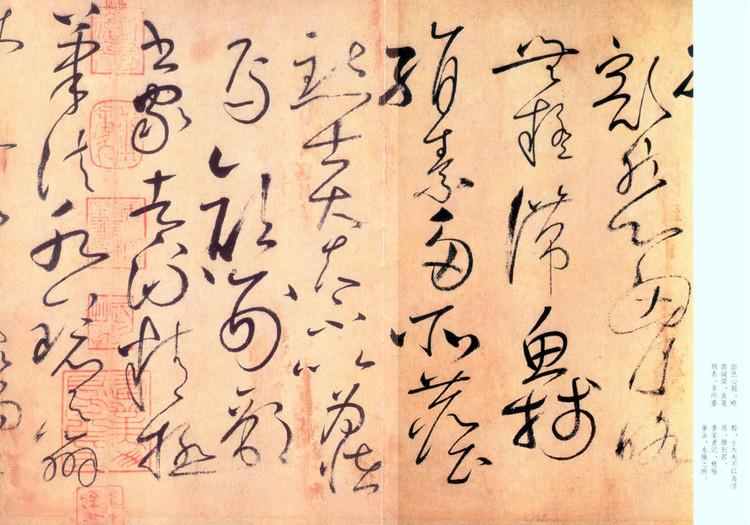 豁然心胸略
無疑滯魚牋
絹素多所塵
點士大夫不以為怪
焉顏刑部
書家者流精極
筆法水鏡之辯
豁然心胸，略
無疑滯，魚箋
絹素，多所塵
點，士大夫不以為怪
焉。顏刑部，
書家者流，精極
筆法，水鏡之辨，